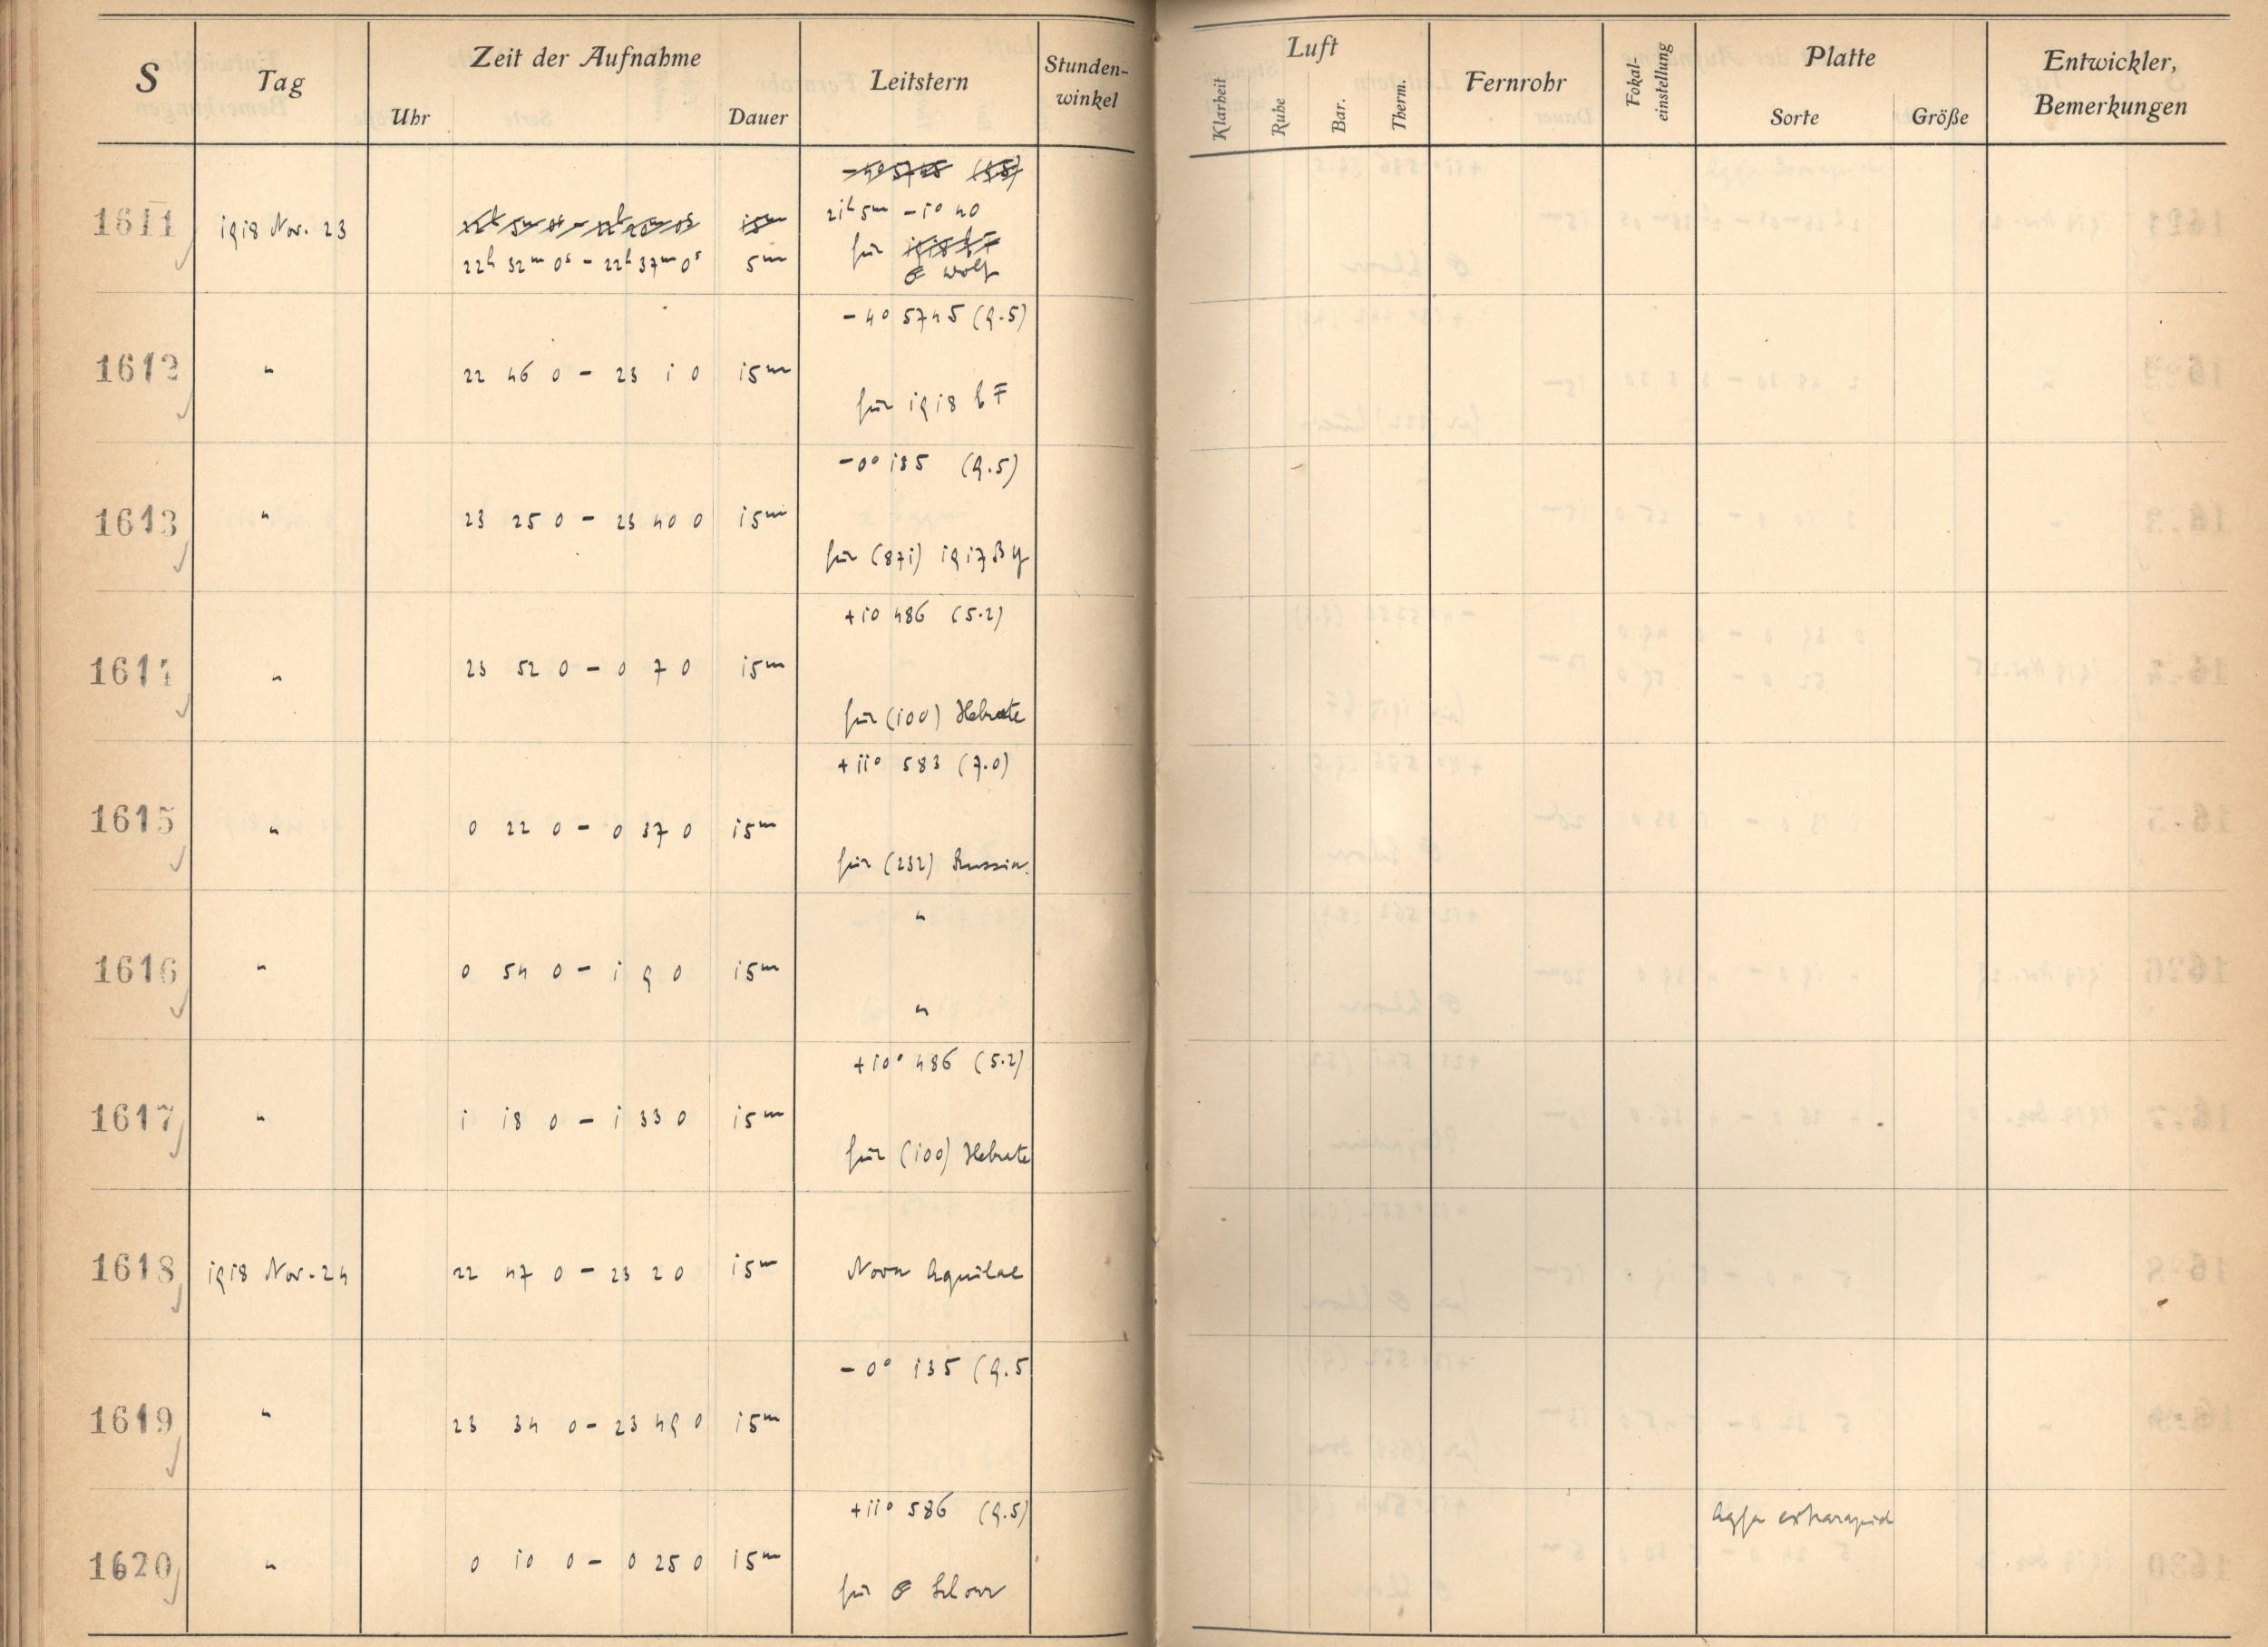 S Tag Zeit der Aufnahme Leitstern Stunden-winkel Luft Fernrohr Fokal-einstellung Platte Entwickler, Bemerkungen
Uhr Dauer Klarheit Ruhe Bar. Therm. Sorte Größe
-4° 5745 (9.5)
1611 1918 Nov. 23 15m 21h 5m -10 40
22h 32m 0s - 22h 37m 0s 5m für 1918 bF
Wolf
-40 5745 (9.5)
1612 " 22 46 0 - 23 1 0 15m
für 1918 bF
-0° 135 (9.5)
1613 " 23 25 0 - 23 40 0 15m
für (871) 1917 BY
+10 486 (5.2)
1614 " 23 52 0 - 0 7 0 15m
für (100) Hekate
+11° 583 (7.0)
1615 " 0 22 0 - 0 37 0 15m
für (232) Russia.
"
1616 " 0 54 0 - 1 9 0 15m
"
+10° 486 (5.2)
1617 " 1 18 0 - 1 33 0 15m
für (100) Hekate
1618 1918 Nov. 24 22 47 0 - 23 2 0 15m Nova Aquilae
-0° 135 (9.5
1619 " 23 34 0 - 23 49 0 15m
+11° 586 (9.5) Agfa extrarapid
1620 " 0 10 0 - 0 25 0 15m
für Schorr